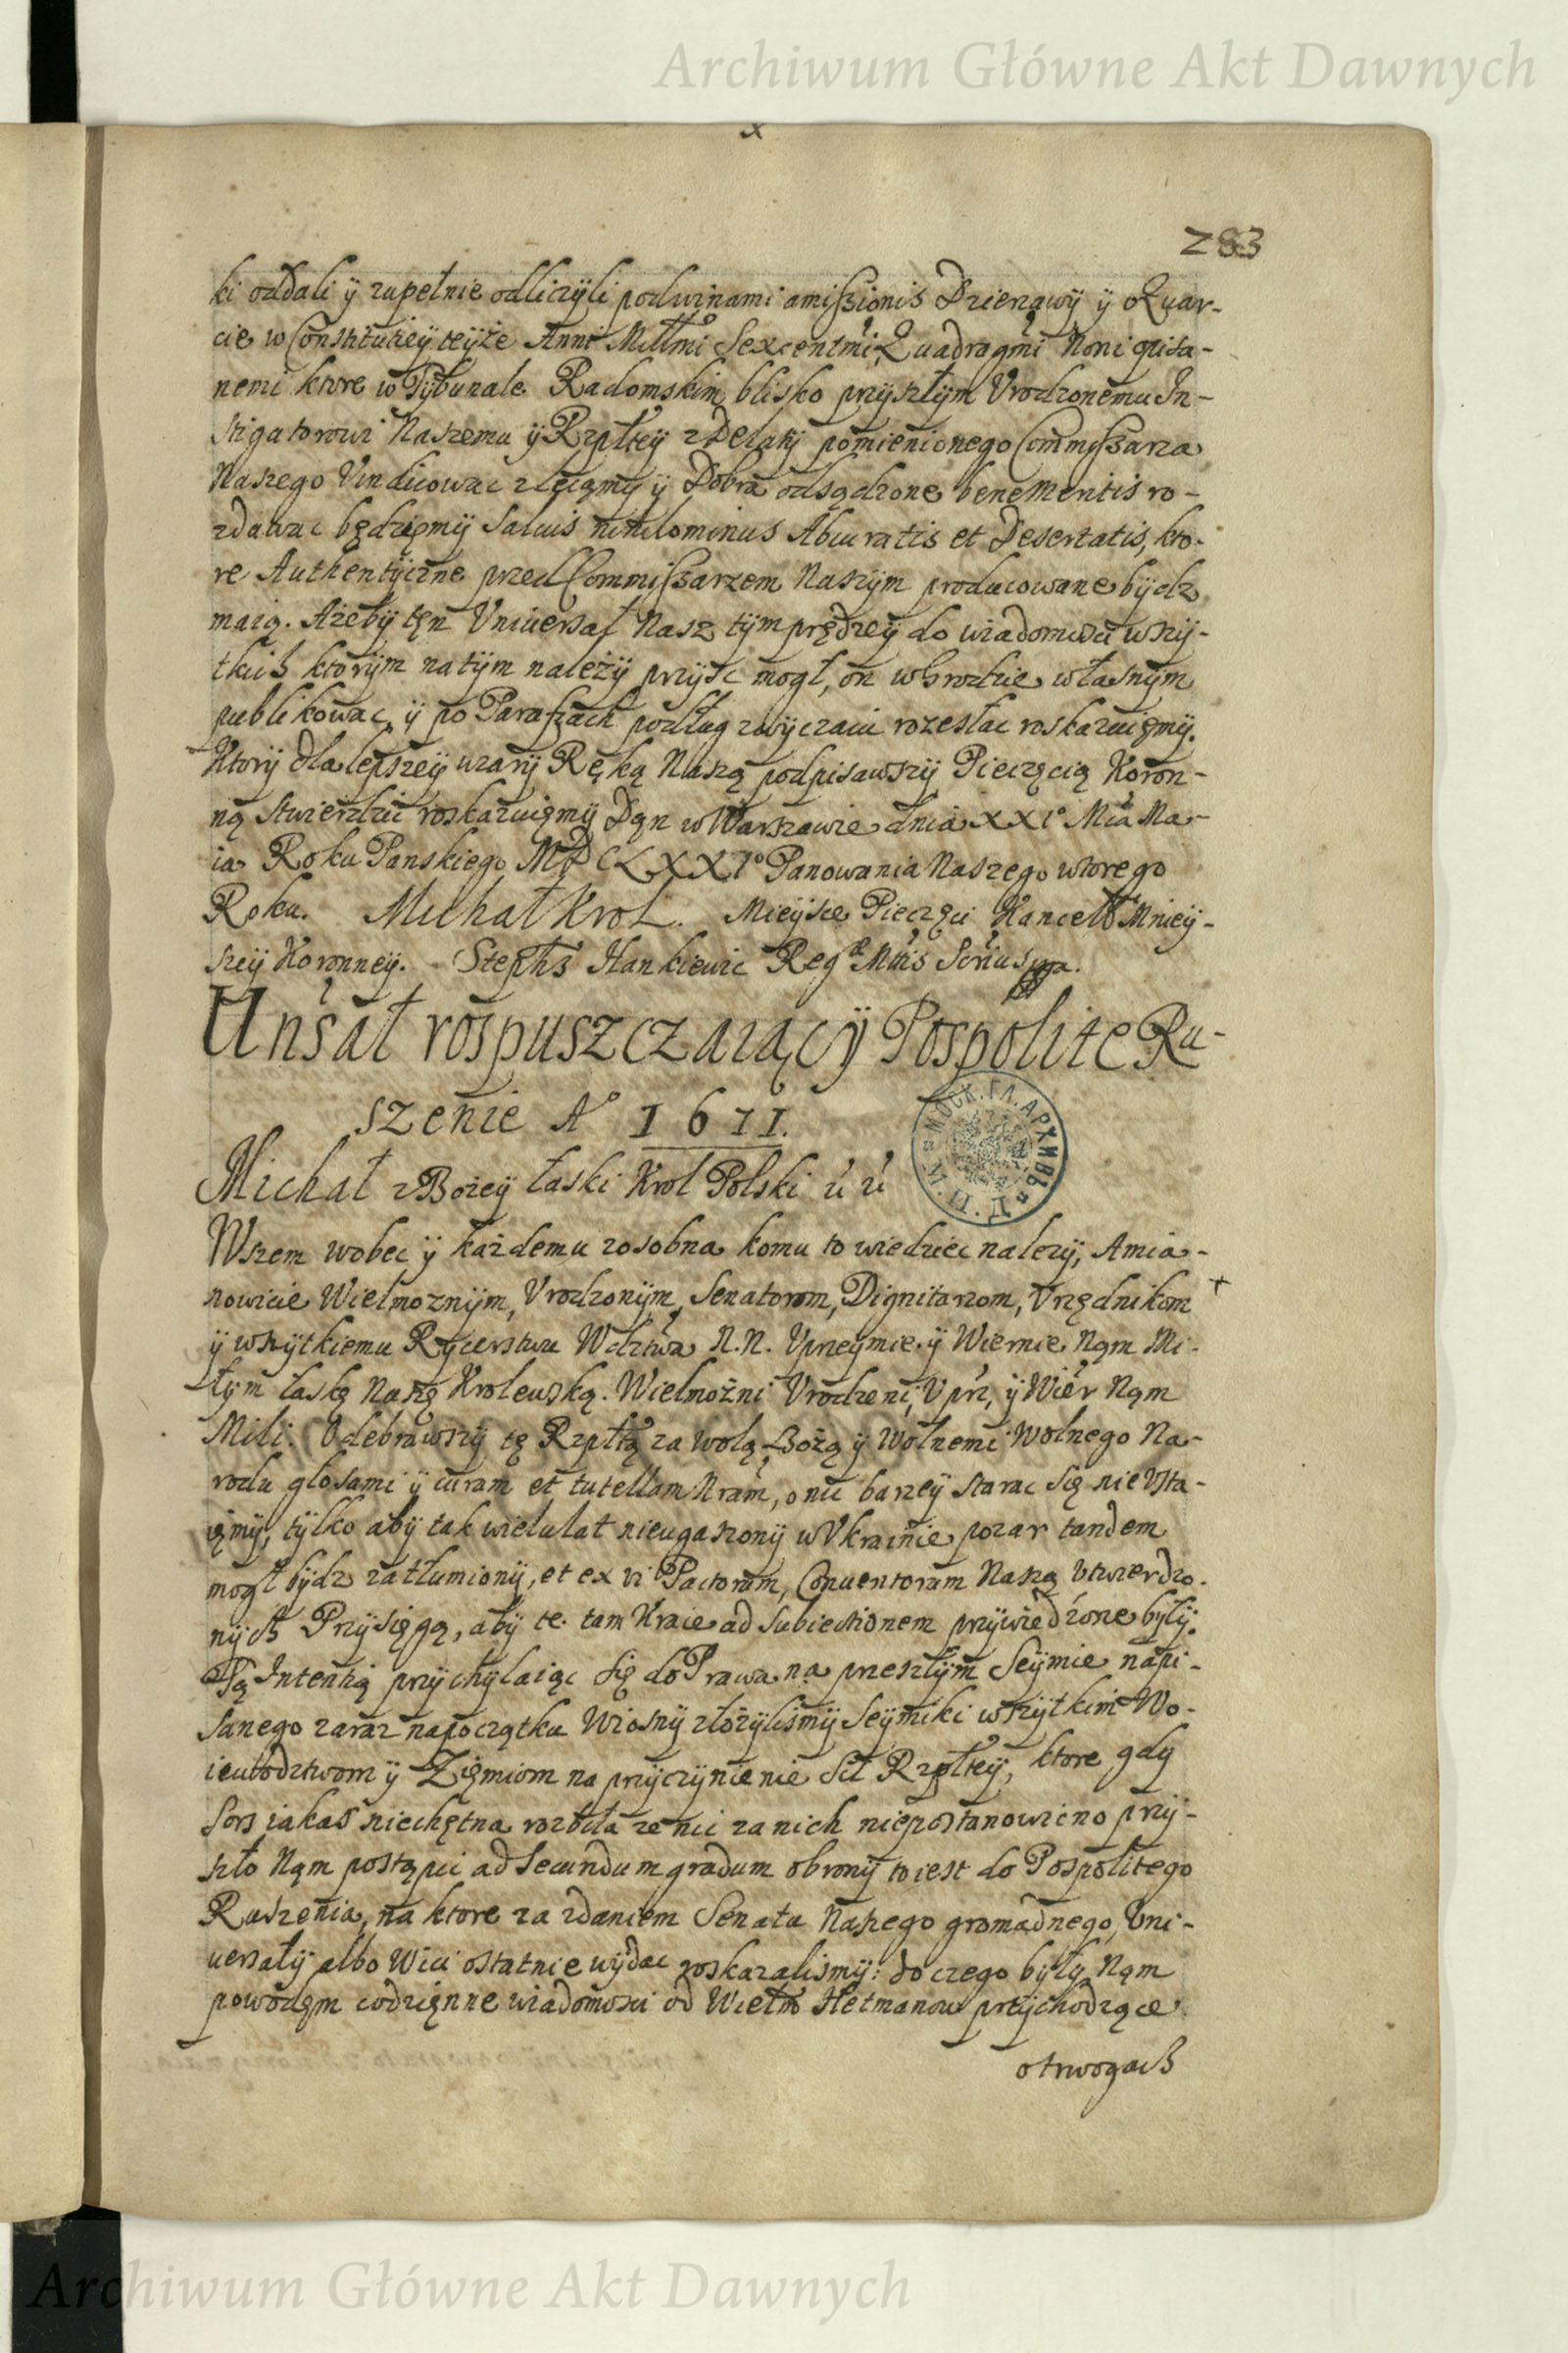 Archiwum Główne Akt Dawnych
283
ki oddali ÿ zupełnie odliczÿli pod winami amissionis Dzierzawÿ ÿ o Quar-
cie w Constitucieÿ teÿże Anni Millmi Sexcentmi Quadragmi Noni opisa-
nemi ktore w Trÿbunale Radomskim blisko przÿszłÿm Vrodzonemu In-
stigatorowi Naszemu ÿ Rzpłteÿ z Delatÿ pomienionego Commissarza
Naszego Vindicowac zlecąmÿ ÿ Dobra odsądzone bene Meritis ro-
zdawac będzięmÿ Saluis nihilominus Abiuratis et Desertatis, kto-
re Authentÿczne przed Commissarzem Naszÿm producowane bÿdz
maią. Ażebÿ tęn Vniuersał Nasz tÿm prędzeÿ do wiadomosci wszÿ-
tkich ktorÿm na tÿm należÿ przÿsc mogł, on w Grodzie własnÿm
publikowac, ÿ po Parafiach podług zwÿczaiu rozesłac roskazuięmÿ.
Ktorÿ dla lepszeÿ wiarÿ Ręką Naszą podpisawszÿ Pieczęcią Koron-
ną stwierdzic roskazuięmÿ Dąn w Warszawie dnia XXIº Mca Ma-
ia Roku Panskiego MDCLXXIº Panowania Naszego wtorego
Roku. Michał Krol. Mieÿsce Pieczęci Kancell Mnieÿ-
szeÿ Koronneÿ. Stephs Hankiewic Regæ Mtis Scrius mp.
Unsał rospuszczaiącÿ Pospolite Ru-
szenie Aº 1671.
Michał z Bożeÿ łaski Krol Polski ú ú
Wszem wobec ÿ każdemu zosobna komu to wiedziec nalezÿ, A mia-
nowicie Wielmoznÿm, Vrodzonÿm, Senatorom, Dignitarzom, Vrzędnikom
ÿ wszÿtkiemu Rÿcerstwu Wdztwa N.N. Vprzeÿmie ÿ Wiernie Nąm Mi-
łÿm łaskę Naszę Krolewską. Wielmożni Vrodzeni, Vprz, ÿ Wier Nąm
Mili. Odebrawszÿ tę Rzpłtą za wolą Bożą ÿ Wolnemi Wolnego Na-
rodu głosami ÿ curam et tutellam Nram, o nic barzeÿ starac się nie Vsta-
ięmÿ, tÿlko abÿ tak wielu lat nieugaszonÿ w Vkrainie pozar tandem
mogł bÿdz zatłumionÿ, et ex vi Pactorum, Conuentorum Naszą Vtwierdzo-
nÿch Przÿsięgą, abÿ te tam Kraie ad subiectionem przÿwiedźone bÿłÿ.
Tą Intentią przÿchÿlaiąc się do Prawa na przeszłÿm Seÿmie napi-
sanego zaraz na początku Wiosnÿ złożÿlismÿ Seÿmiki wszÿtkim Wo-
iewodztwom ÿ Ziemiom na przÿczÿnienie sił Rzpłteÿ, ktore gdÿ
sors iakas niechętna rozbiła ze nic za nich niepostanowiono przÿ-
szło Nąm postąpic ad secundum gradum obronÿ to iest do Pospolitego
Ruszenia, na ktore za zdaniem Senatu Naszego gromadnego, Vni-
uersałÿ albo Wici ostatnie wÿdac roskazalismÿ: do czego bÿłÿ Nąm
powodęm codzięnne wiadomosci od Wielm Hetmanow przÿchodzące
o trwogach
Archiwum Główne Akt Dawnych